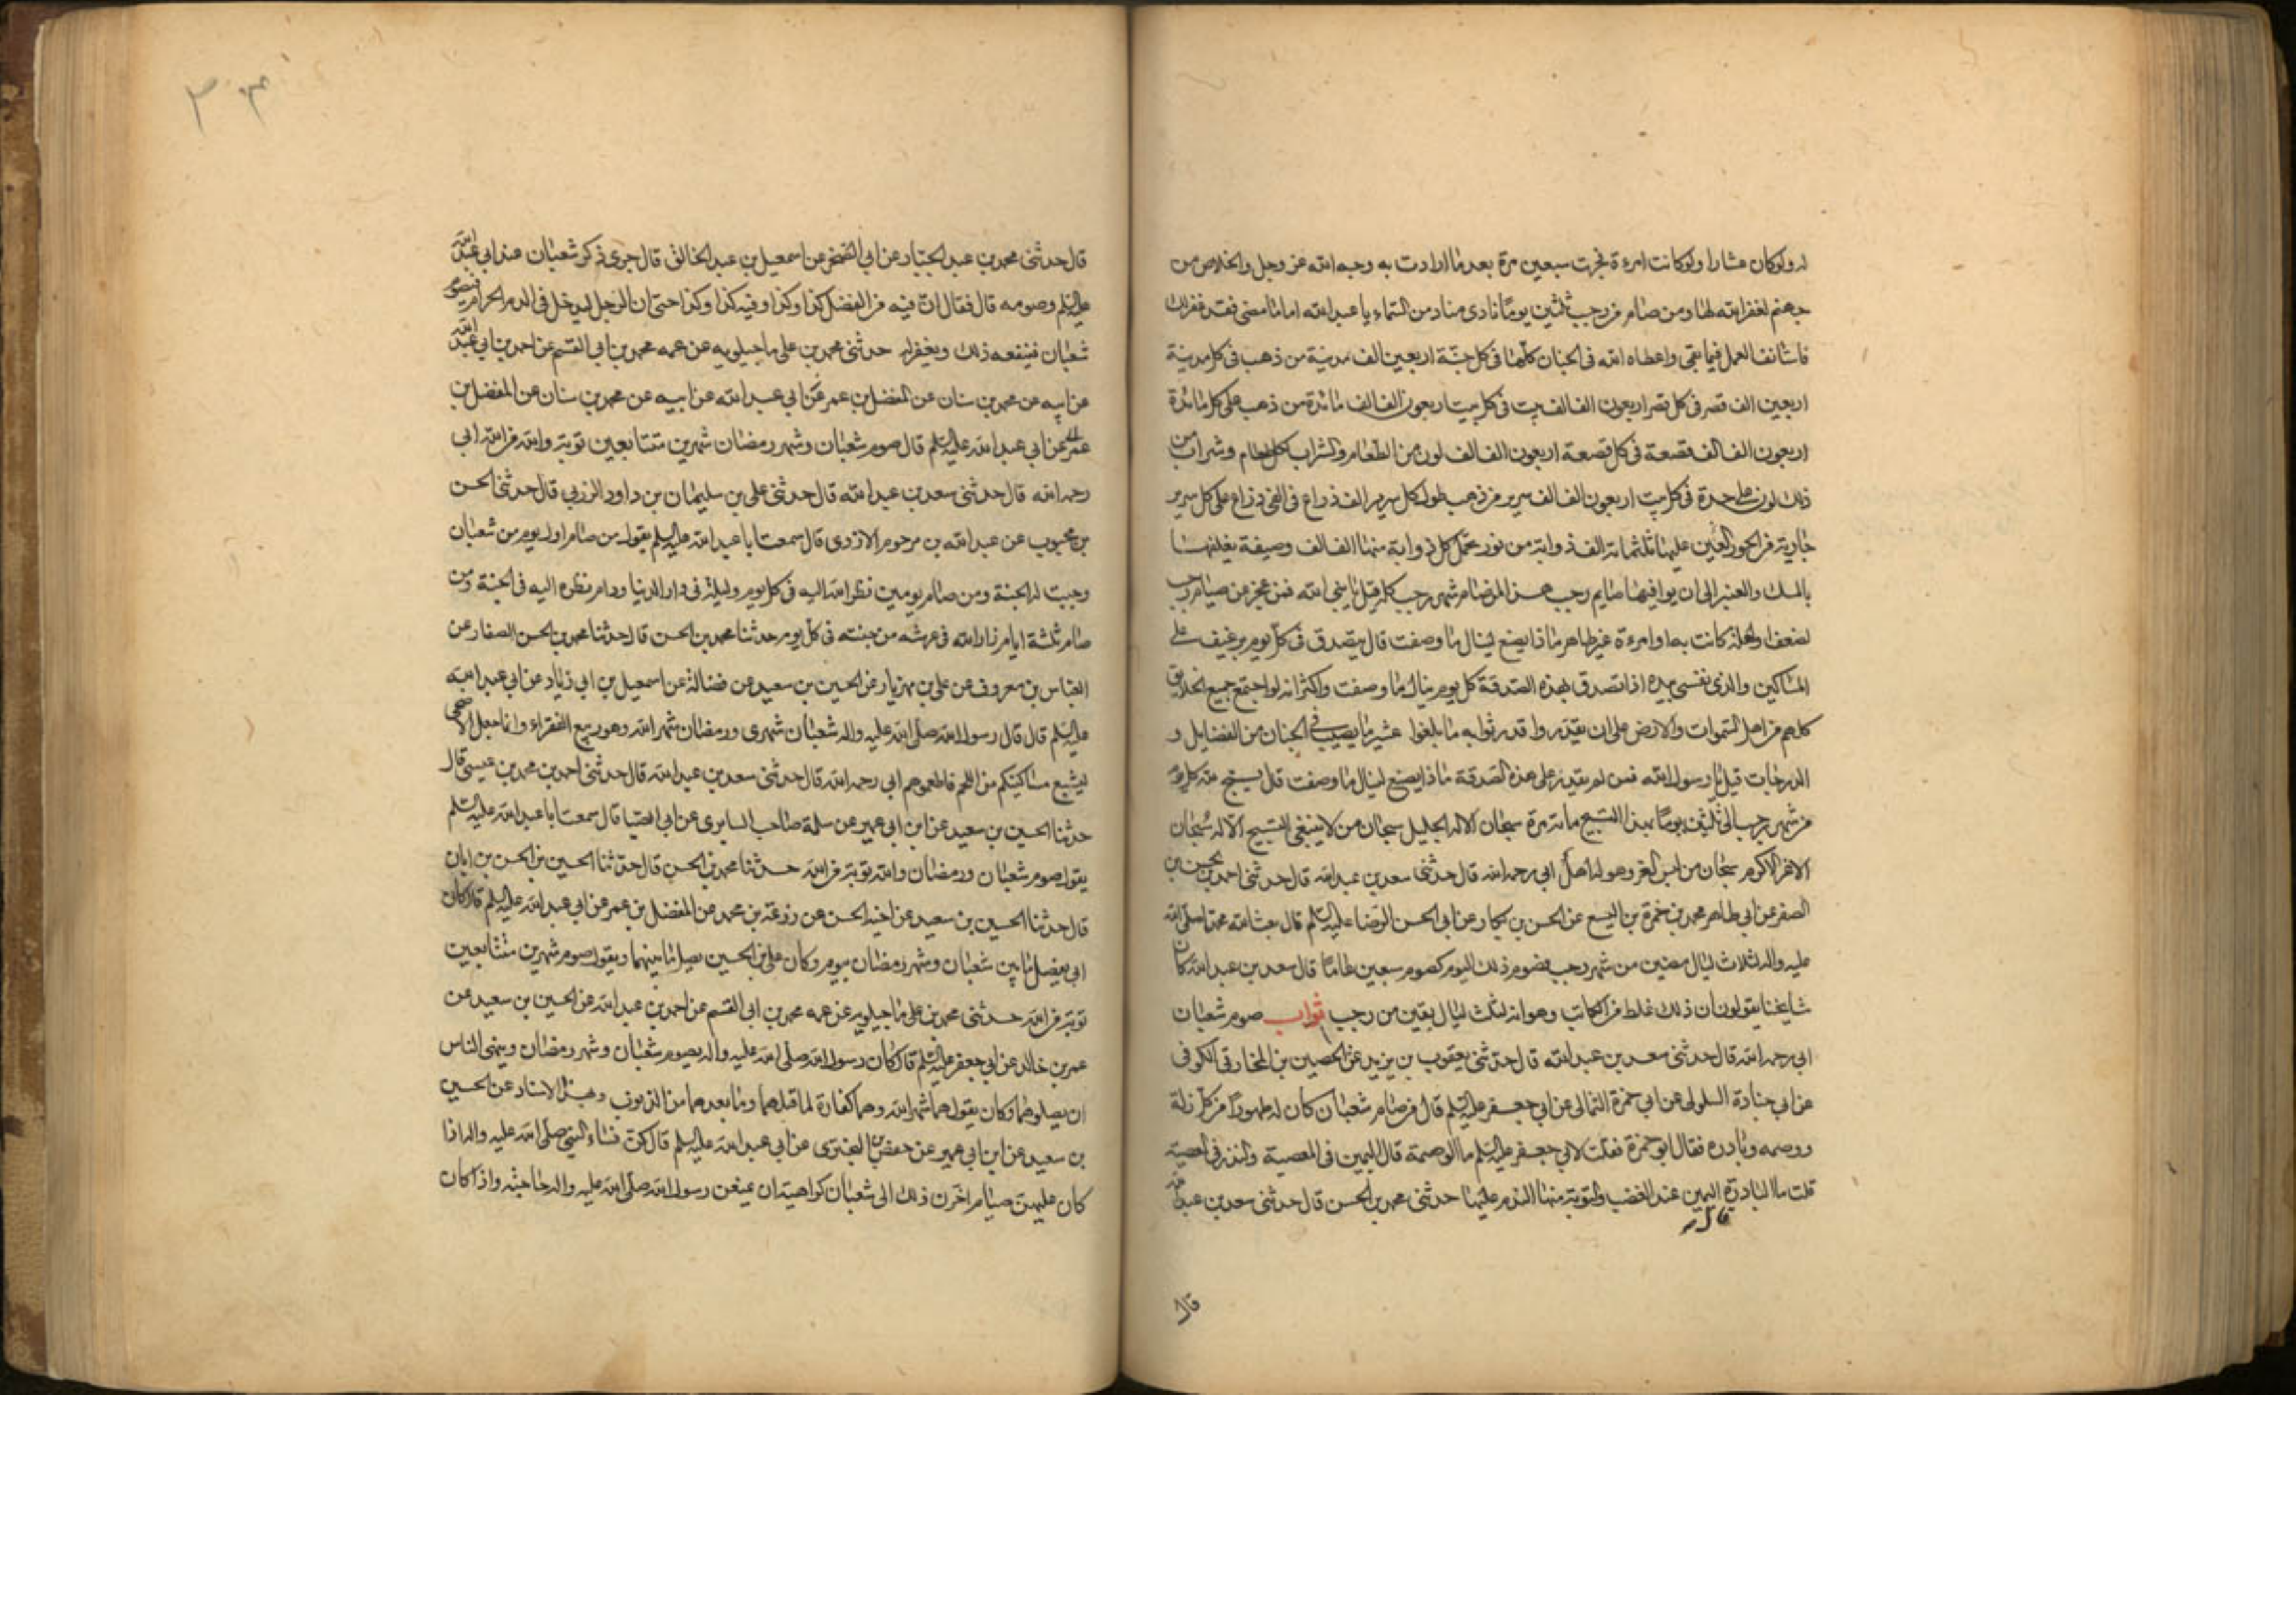 له ولو كان عشارا ولو كانت امرءة فجرت سبعين مرة بعد ما ارادت به وجه الله عز وجل والخلاص من
جهنم لغفر الله لها ومن صام من رجب ثلثين يوما نادى مناد من السماء يا عبد الله اما ما مضى فقد غفر لك
فاستانف العمل فيما بقى واعطاه الله فى الجنان كلها فى كل جنة اربعين الف مدينة من ذهب فى كل مدينة
اربعين الف قصر فى كل قصر اربعون الف الف بيت فى كل بيت اربعون الف الف مائدة من ذهب على كل مائدة
اربعون الف الف قصعة فى كل قصعة اربعون الف الف لون من الطعام والشراب لكل طعام وشراب من
ذلك لون على حدة فى كل بيت اربعون الف الف سرير من ذهب طول كل سرير الف ذراع فى الفى ذراع على كل سرير
جارية من الحور العين عليها ثلثمائة الف ذوابة من نور تحمل كل ذوابة منها الف الف وصيفة يغلفنها
بالمسك والعنبر الى ان يوافيها صايم رجب هذا لمن صام شهر رجب كله قيل يا نبى الله فمن عجز عن صيام رجب
لضعف او لعلة كانت به او امرءة غير طاهر ماذا يصنع لينال ما وصفت قال يتصدق فى كل يوم برغيف على
المساكين والذى نفسى بيده اذا تصدق بهذه الصدقة كل يوم ينال ما وصفت واكثر انه لو اجتمع جميع الخلايق
كلهم من اهل السموات والارض على ان يقدروا قدر ثوابه ما بلغوا عشير ما يصيب فى الجنان من الفضايل و
الدرجات قيل يا رسول الله فمن لم يقدر على هذه الصدقة ماذا يصنع لينال ما وصفت قال يسبح الله كل يوم
من شهر رجب الى ثلثين يوما بهذا التسبيح مائة مرة سبحان الاله الجليل سبحان من لا ينبغى التسبيح الا له سبحان
الاعز الاكرم سبحان من لبس العز وهو له اهل ابى رحمه الله قال حدثنى سعد بن عبد الله قال حدثنى احمد بن الحسين بن
الصقر عن ابى طاهر محمد بن حمزة بن اليسع عن الحسن بن بكار عن ابى الحسن الرضا عليه السلم قال بعث الله محمدا صلى الله
عليه واله لثلاث ليال مضين من شهر رجب فصوم ذلك اليوم كصوم سبعين عاما قال سعد بن عبد الله كان
مشايخنا يقولون ان ذلك غلط من الكاتب وهو انه لثلث ليال بقين من رجب ثواب صوم شعبان
ابى رحمه الله قال حدثنى سعد بن عبد الله قال حدثنى يعقوب بن يزيد عن الحصين بن المخارق الكوفى
عن ابى جنادة السلولى عن ابى حمزة الثمالى عن ابى جعفر عليه السلم قال من صام شعبان كان له طهورا من كل زلة
ووصمه وبادره فقال ابو حمزة فقلت لابى جعفر عليه السلم ما الوصمة قال اليمين فى المعصية والنذر فى المعصية
قلت ما البادرة اليمين عند الغضب والتوبة منها الندم عليها حدثنى محمد بن الحسن قال حدثنى سعد بن عبد الله
قال
قال
قال حدثنى محمد بن عبد الجبار عن ابى الصخر عن اسمعيل بن عبد الخالق قال جرى ذكر شعبان عند ابى عبد الله
عليه السلم وصومه قال فقال ان فيه من الفضل كذا وكذا وفيه كذا وكذا حتى ان الرجل ليدخل فى الدم الحرام فيصوم
شعبان فينفعه ذلك ويغفر له حدثنى محمد بن على ماجيلويه عن عمه محمد بن ابى القسم عن احمد بن ابى عبد الله
عن ابيه عن محمد بن سنان عن المفضل بن عمر عن ابى عبد الله عن ابيه عن محمد بن سنان عن المفضل بن
عمر عن ابى عبد الله عليه السلم قال صوم شعبان وشهر رمضان شهرين متتابعين توبة والله من الله ابى
رحمه الله قال حدثنى سعد بن عبد الله قال حدثنى على بن سليمان بن داود الرزبى قال حدثنى الحسن
بن محبوب عن عبد الله بن مرحوم الازدى قال سمعت ابا عبد الله عليه السلم يقول من صام اول يوم من شعبان
وجبت له الجنة ومن صام يومين نظر الله اليه فى كل يوم وليلة فى دار الدنيا ودام نظره اليه فى الجنة ومن
صام ثلثة ايام زار الله فى عرشه من جنته فى كل يوم حدثنا محمد بن الحسن قال حدثنا محمد بن الحسن الصفار عن
العباس بن معروف عن على بن مهزيار عن الحسين بن سعيد عن فضالة عن اسمعيل بن ابى زياد عن ابى عبد الله
عليه السلم قال قال رسول الله صلى الله عليه واله شعبان شهرى ورمضان شهر الله وهو ربيع الفقراء وانما جعل الاضحى
ليشبع مساكينكم من اللحم فاطعموهم ابى رحمه الله قال حدثنى سعد بن عبد الله قال حدثنى احمد بن محمد بن عيسى قال
حدثنا الحسين بن سعيد عن ابن ابى عمير عن سلمة صاحب السابرى عن ابى الصبا قال سمعت ابا عبد الله عليه السلم
يقول صوم شعبان ورمضان والله توبة من الله حدثنا محمد بن الحسن قال حدثنا الحسين بن الحسن بن ابان
قال حدثنا الحسين بن سعيد عن اخيه الحسن عن زرعة بن محمد عن المفضل بن عمر عن ابى عبد الله عليه السلم قال كان
ابى يفصل ما بين شعبان وشهر رمضان بيوم وكان على بن الحسين يصل ما بينهما ويقول صوم شهرين متتابعين
توبة من الله حدثنى محمد بن على ماجيلويه عن عمه محمد بن ابى القسم عن احمد بن عبد الله عن الحسين بن سعيد عن
عمر بن خالد عن ابى جعفر عليه السلم قال كان رسول الله صلى الله عليه واله يصوم شعبان وشهر رمضان وينهى الناس
ان يصلوهما وكان يقول هما شهر الله وهما كفارة لما قبلهما وما بعدهما من الذنوب وبهذا الاسناد عن الحسين
بن سعيد عن ابن ابى عمير عن حفص بن البخترى عن ابى عبد الله عليه السلم قال كن نساء النبى صلى الله عليه واله اذا
كان عليهن صيام اخرن ذلك الى شعبان كراهية ان يمنعن رسول الله صلى الله عليه واله حاجته واذا كان